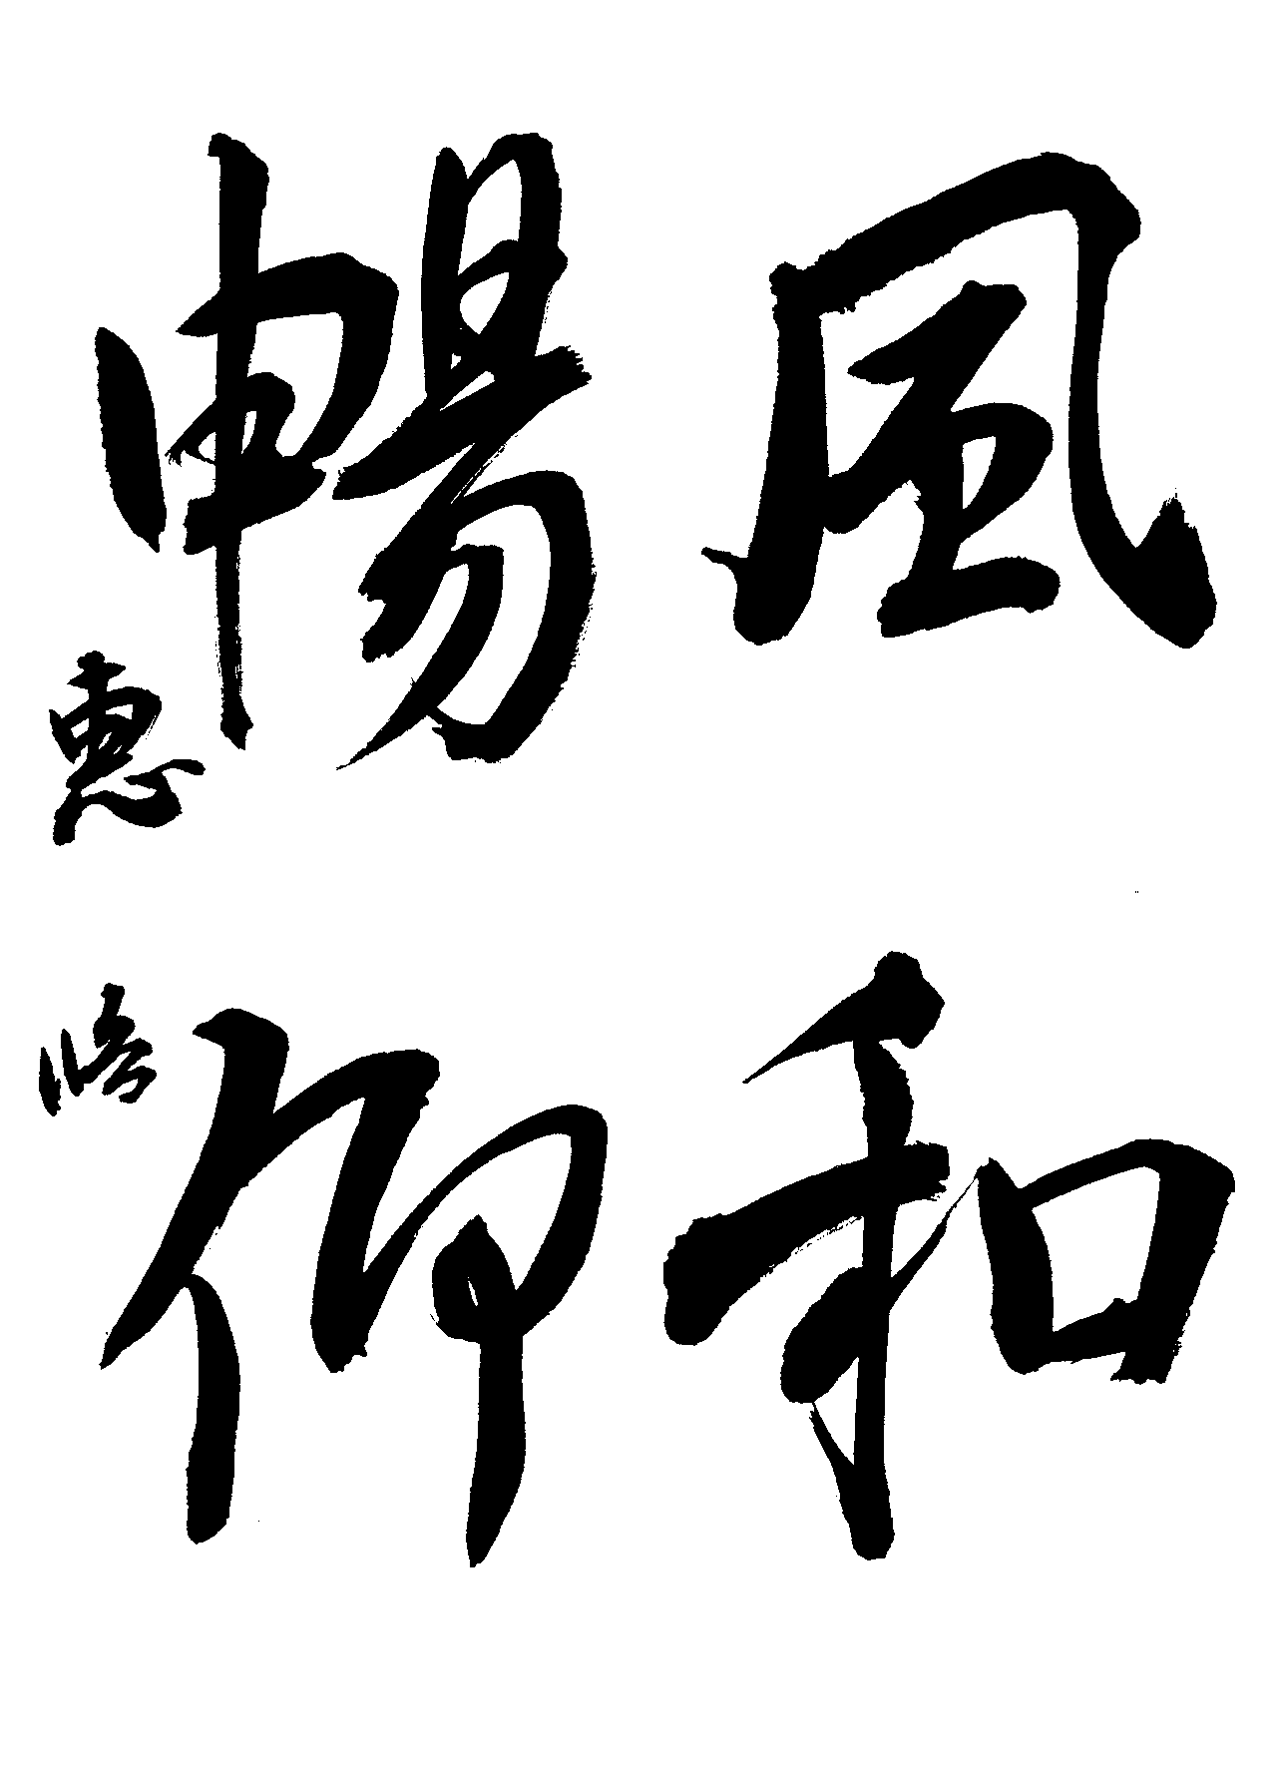 風和
暢仰
惠